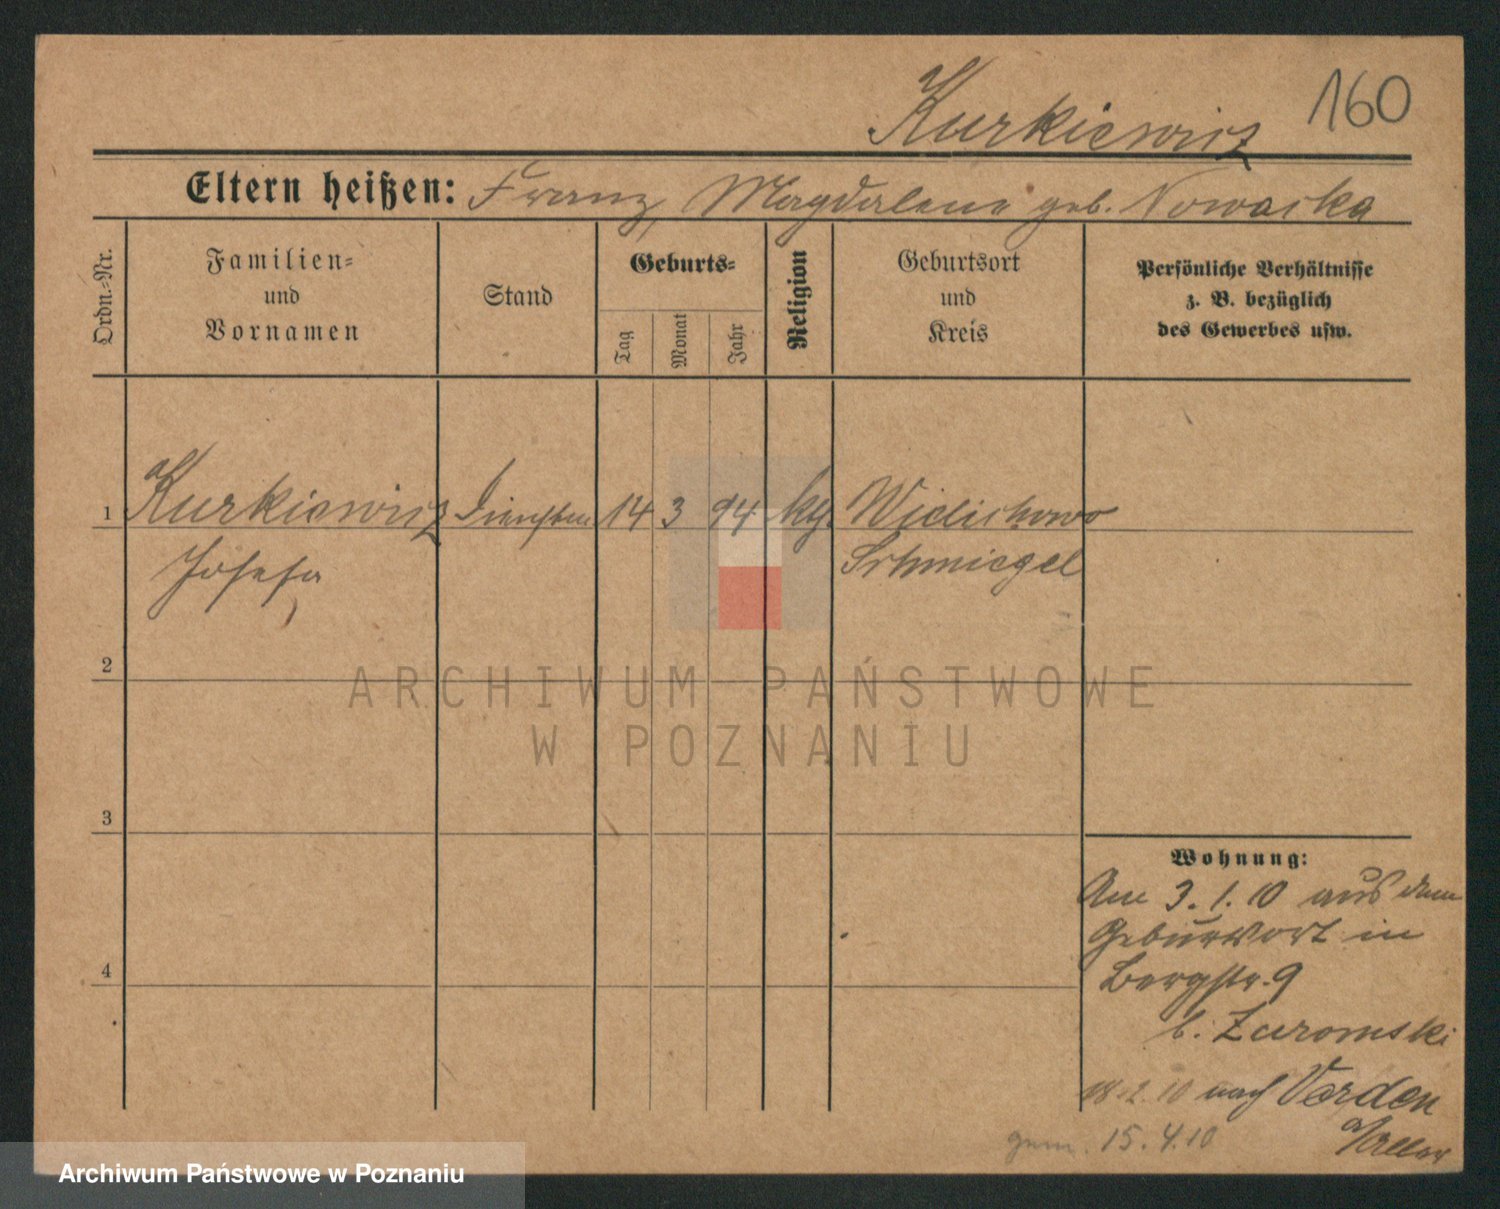 Kurkiewicz 160
Eltern heißen: Franz, Magdalena geb. Nowacka
Ordn.-Nr.
Familien-
und
Vornamen
Stand
Geburts-
Tag
Monat
Jahr
Religion
Geburtsort
und
Kreis
Persönliche Verhältnisse
z. B. bezüglich
des Gewerbes usw.
1 Kurkiewicz 14 3 94 kg.
Josefa Schmiegel
2
ARCHIWUM PAŃSTWOWE
W POZNANIU
3
4
Wohnung:
Am 3.1.10 aus dem
Geburtsort in
Bergstr. 9
b. Zuromski
18.2.10 nach Verden
a/Aller
gem. 15.4.10
Archiwum Państwowe w Poznaniu